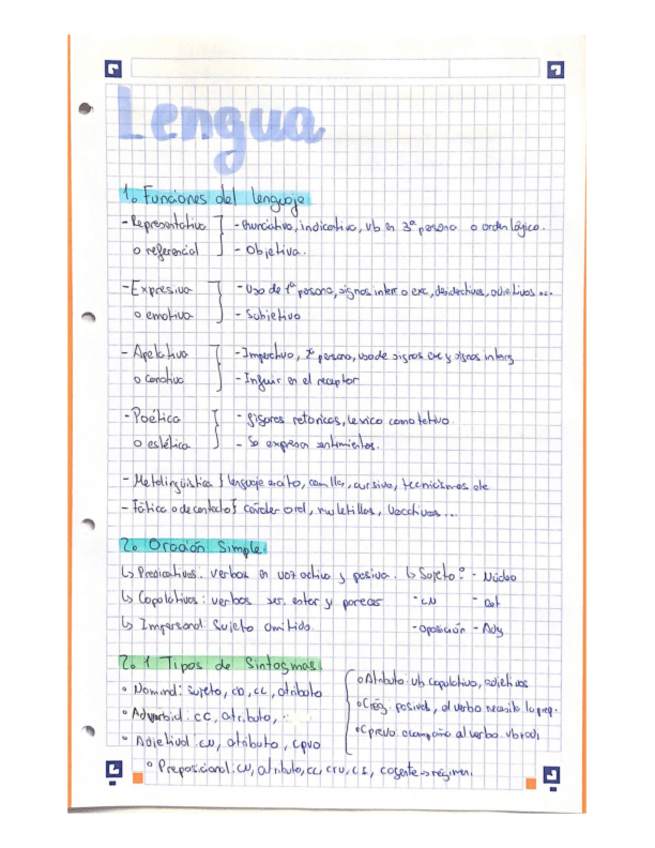 Lengua
1. Funciones del lenguaje
- Representativa - Enunciativa, indicativa, vb en 3ª persona o orden lógico.
o referencial - Objetiva.
- Expresiva - Uso de 1ª persona, signos interr o exc, desiderativas, adjetivos ...
o emotiva - Subjetivo
- Apelativa - Imperativo, 2ª persona, uso de signos exc y signos interg
o conativa - Influir en el receptor
- Poética - figuras retoricas, lexico connotativo.
o estética - Se expresan sentimientos.
- Metalingüistica } lenguaje escrito, comillas, cursiva, tecnicismos etc
- Fática o de contacto } carácter oral, muletillas, Vocativos ...
2. Oración Simple:
↳ Predicativas: verbos en voz activa y pasiva. ↳ Sujeto: - Núcleo
↳ Copulativas: verbos ser, estar y parecer - CN - Det
↳ Impersonal: Sujeto omitido. - Aposición - Ady
2.1 Tipos de Sintagmas:
• Nominal: sujeto, CD, CC, atributo
• Adverbial: CC, atributo,
• Adjetival: CN, atributo, CPVO
• Preposicional: CN, atributo, CC, CRV, CI, cagente → régimen.
○ Atributo: vb copulativo, adjetivos
• C.ag. pasivas, el verbo necesita la prep.
• Cpredvo acompaña al verbo.